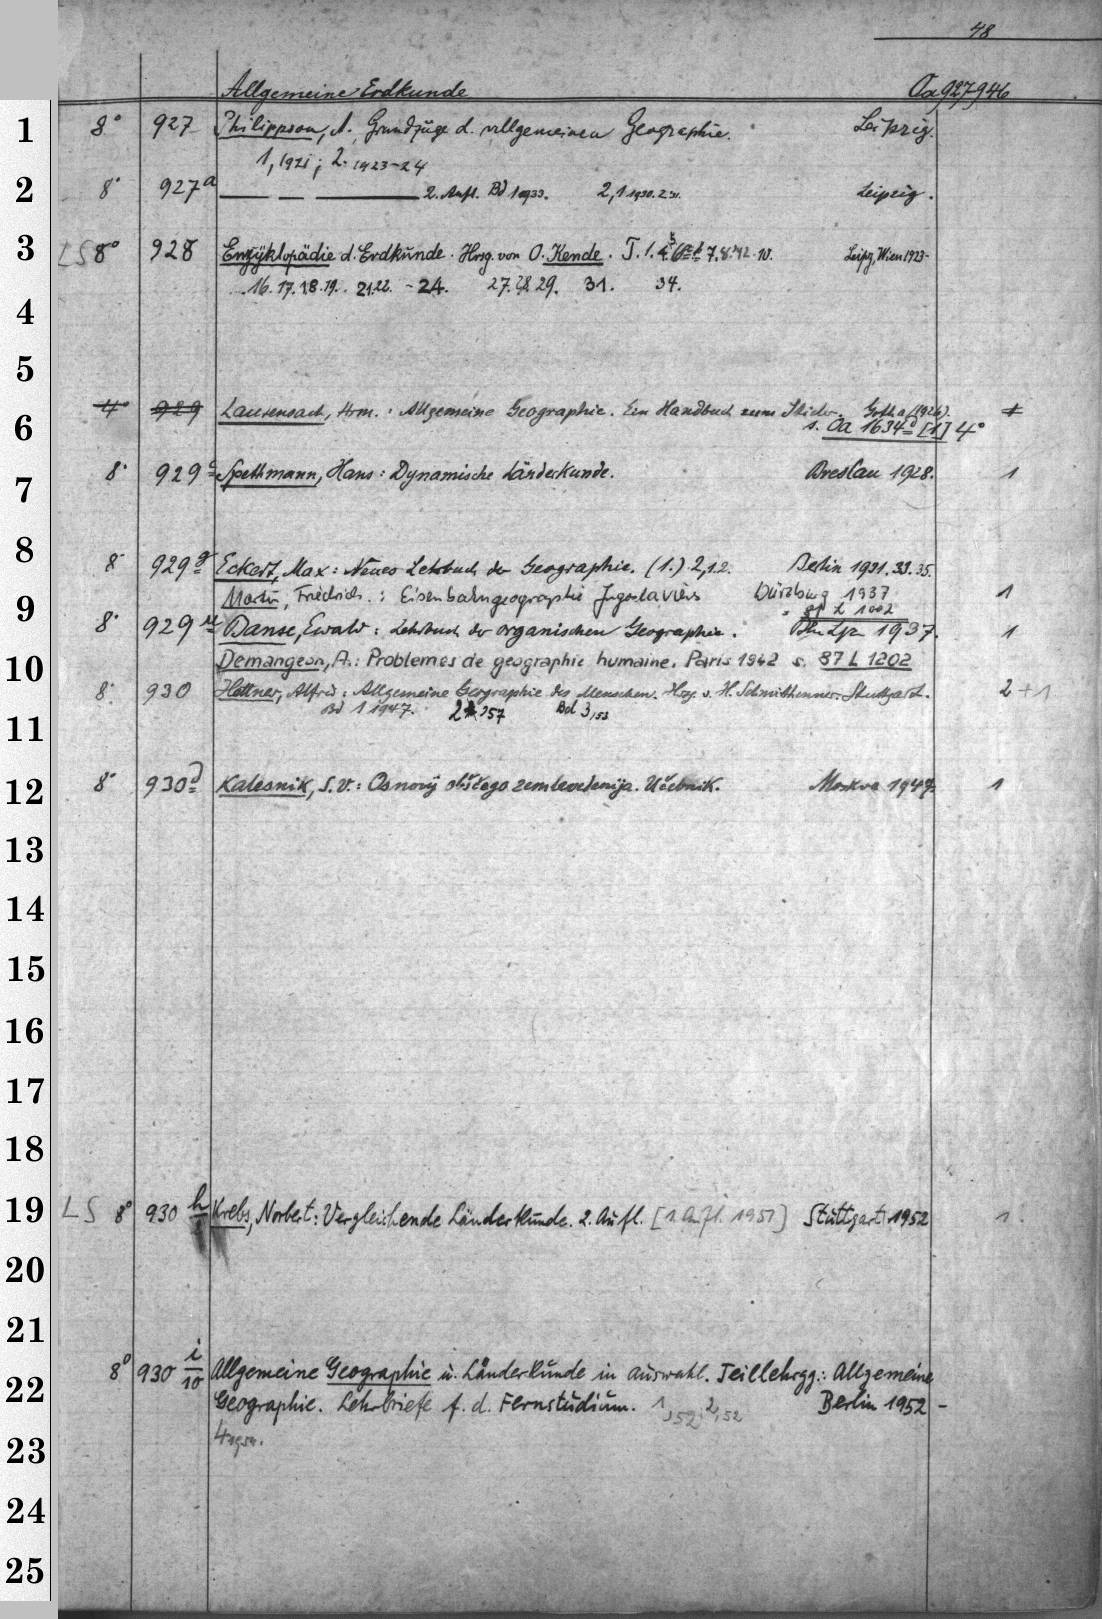 48
Allgemeine Erdkunde Oa 927-946
1 8° 927 Philippson, A. Grundzüge d. allgemeinen Geographie. Leipzig.
1, 1921; 2. 1923-24
2 8° 927a 2. Aufl. Bd 1 1933. 2,1 1930. 2 31. Leipzig.
3 LS 8° 928 Enzyklopädie d. Erdkunde. Hrsg. von O. Kende. T. 1. 4. 7. 8. 10. Leipz, Wien 1923-
16. 17. 18. 19. 21.22. -24. 27. 28. 29. 31. 34.
4
5
4° 929 Lautensach, Hrm.: Allgemeine Geographie. Ein Handbuch zum Stieler. Gotha (1926).
6 s. Oa 1634 [1] 4°
7 8° 929c Spethmann, Hans: Dynamische Länderkunde. Breslau 1928. 1
8 8° 929g Eckert, Max: Neues Lehrbuch der Geographie. (1.) 2,1.2. Berlin 1931. 33. 35.
Friedrich.: Eisenbahngeographie Jugoslaviens Würzburg 1937 1
9 1002
8° 929 Banse, Ewald: Lehrbuch der organischen Geographie. Bln Lpz 1937. 1
10 Demangeon, A.: Problemes de geographie humaine. Paris 1942 s. 87 L 1202
8° 930 Hettner, Alfred: Allgemeine Geographie des Menschen. Hrg. v. H. Schmitthenner. Stuttgart. 2 + 1
11 Bd 1 1947. 2 1957 Bd 3,53
12 8° 930d Kalesnik, S. V.: Osnovy obščego zemlevedenija. Učebnik. Moskva 1947. 1
13
14
15
16
17
18
19 LS 8° 930 h Krebs, Norbert: Vergleichende Länderkunde. 2. Aufl. [1. Aufl. 1951] Stuttgart 1952 1
20
21
22 8° 930 i/10 Allgemeine Geographie u. Länderkunde in Auswahl. Teillehrgg.: Allgemeine
Geographie. Lehrbriefe f. d. Fernstudium. 1,52; 2,52 Berlin 1952 -
23 4 1954.
24
25